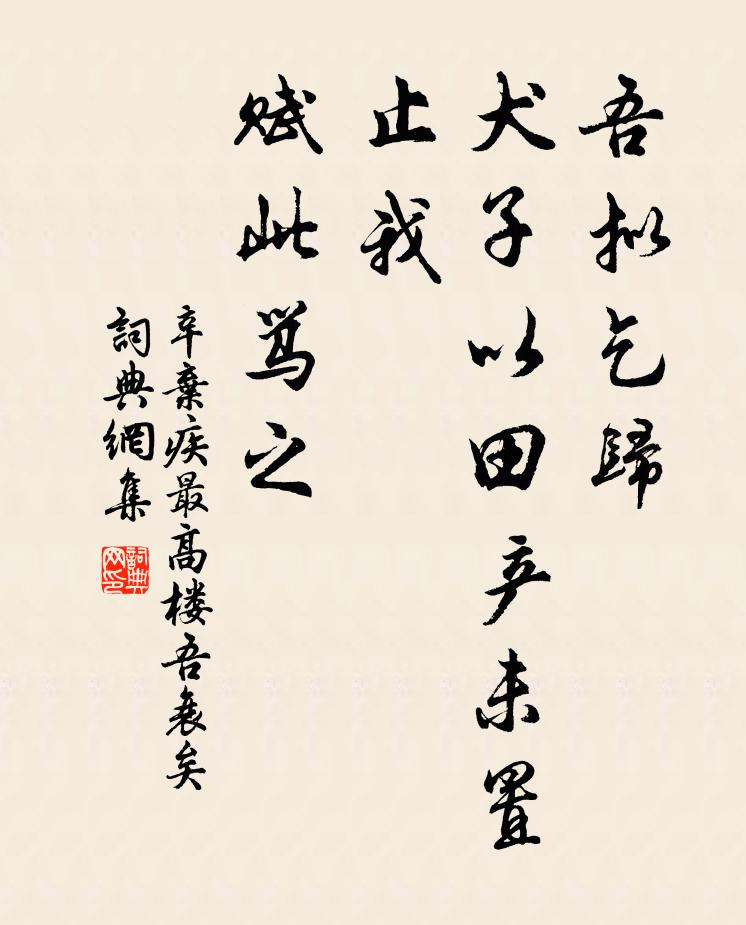 吾拟乞歸
犬子以田产未置
止我
赋此骂之
辛棄疾最高楼吾衰矣
詞典網集
詞典网印